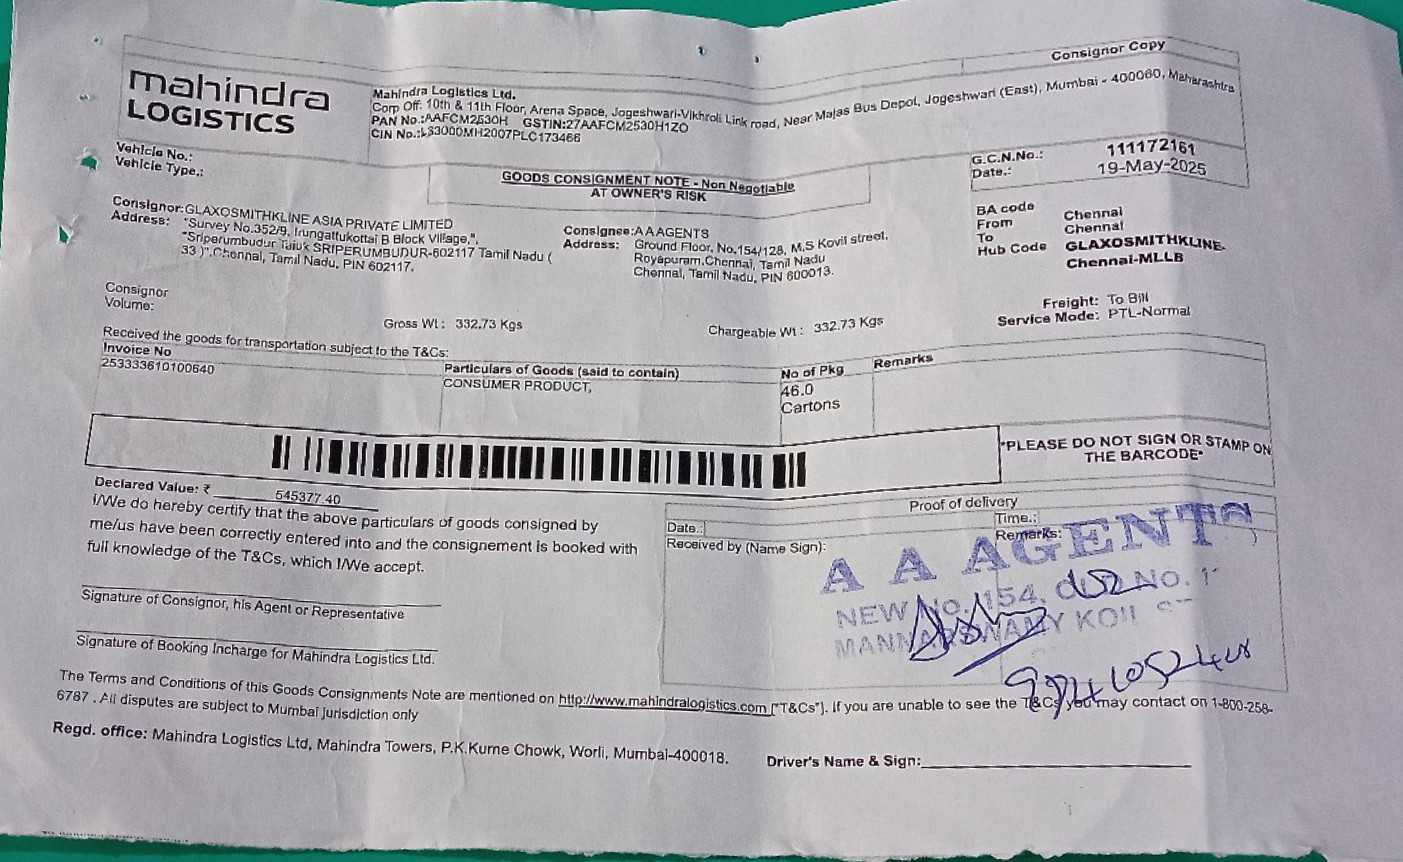 Consignor Copy
mahindra
LOGISTICS
Mahindra Logistics Ltd.
Corp Off: 10th & 11th Floor, Arena Space, Jogeshwari-Vikhroli Link road, Near Majas Bus Depot, Jogeshwari (East), Mumbai - 400060, Maharashtra
PAN No.:AAFCM2530H GSTIN:27AAFCM2530H1ZO
CIN No.:L63000MH2007PLC173466
Vehicle No.:
Vehicle Type.:
GOODS CONSIGNMENT NOTE - Non Negotiable
AT OWNER'S RISK
G.C.N.No.: 111172161
Date.: 19-May-2025
Consignor:GLAXOSMITHKLINE ASIA PRIVATE LIMITED
Address: "Survey No.352/9, Irungattukottai B Block Village,",
"Sriperumbudur Taluk SRIPERUMBUDUR-602117 Tamil Nadu (
33 )",Chennai, Tamil Nadu, PIN 602117.
Consignee:A A AGENTS
Address: Ground Floor, No.154/128, M.S Kovil street,
Royapuram,Chennai, Tamil Nadu
Chennai, Tamil Nadu, PIN 600013.
BA code
From Chennai
To Chennai
Hub Code GLAXOSMITHKLINE-
Chennai-MLLB
Consignor
Volume:
Gross Wt : 332.73 Kgs
Chargeable Wt : 332.73 Kgs
Freight: To Bill
Service Mode: PTL-Normal
Received the goods for transportation subject to the T&Cs:
Invoice No
253333610100640
Particulars of Goods (said to contain)
CONSUMER PRODUCT,
No of Pkg
46.0
Cartons
Remarks
*PLEASE DO NOT SIGN OR STAMP ON
THE BARCODE*
Declared Value: ₹ 545377.40
I/We do hereby certify that the above particulars of goods consigned by
me/us have been correctly entered into and the consignement is booked with
full knowledge of the T&Cs, which I/We accept.
Signature of Consignor, his Agent or Representative
Signature of Booking Incharge for Mahindra Logistics Ltd.
Proof of delivery
Date.:
Time.:
Received by (Name Sign):
Remarks:
A A AGENTS
NEW No. 154, OLD No. 1
MANNARSWAMY KOIL ST
The Terms and Conditions of this Goods Consignments Note are mentioned on http://www.mahindralogistics.com ("T&Cs"). If you are unable to see the T&Cs you may contact on 1-800-258-
6787 . All disputes are subject to Mumbai jurisdiction only
Regd. office: Mahindra Logistics Ltd, Mahindra Towers, P.K.Kurne Chowk, Worli, Mumbai-400018.
Driver's Name & Sign: